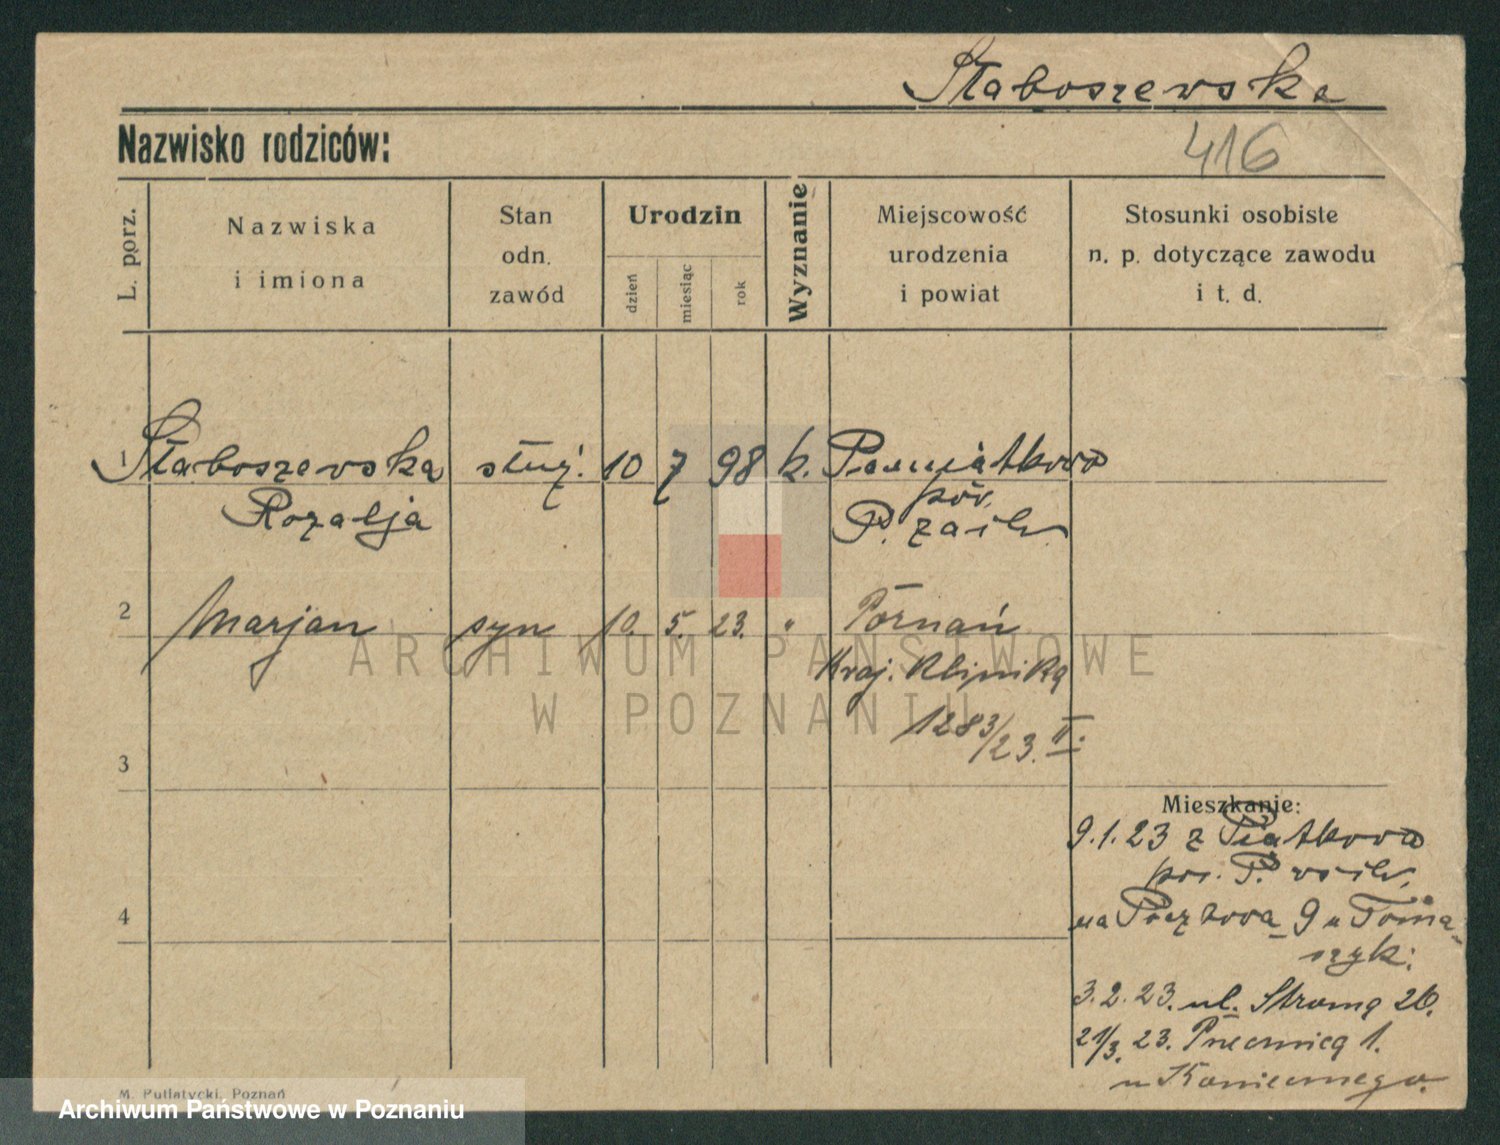 Słaboszewska
416
Nazwisko rodziców:
L. porz.
Nazwiska
i imiona
Stan
odn.
zawód
Urodzin
dzień
miesiąc
rok
Wyznanie
Miejscowość
urodzenia
i powiat
Stosunki osobiste
n. p. dotyczące zawodu
i t. d.
1 Słaboszewska służ. 10 7 98 k.
Rozalja
pow.
2 Marjan syn 10. 5. 23. " Poznań
Kraj. Klinika
1283/23. II.
3
4
Mieszkanie:
9.1.23 z Piątkowa
pow. P.
na Pocztowa 9 u Toma-
szyk.
3.2.23. ul. Stroma 26.
21/3. 23. 1.
u Koniecznego.
M. Putiatycki, Poznań
ARCHIWUM PAŃSTWOWE
W POZNANIU
Archiwum Państwowe w Poznaniu